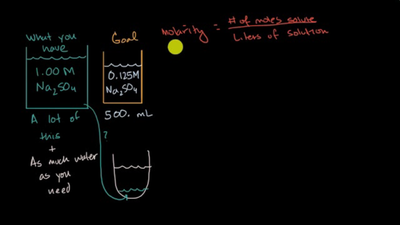 What you
have
1.00 M
Na2SO4
A lot of
this
+
As much water
as you
need
Goal
0.125M
Na2SO4
500. mL
?
Molarity = # of moles solute
Liters of solution